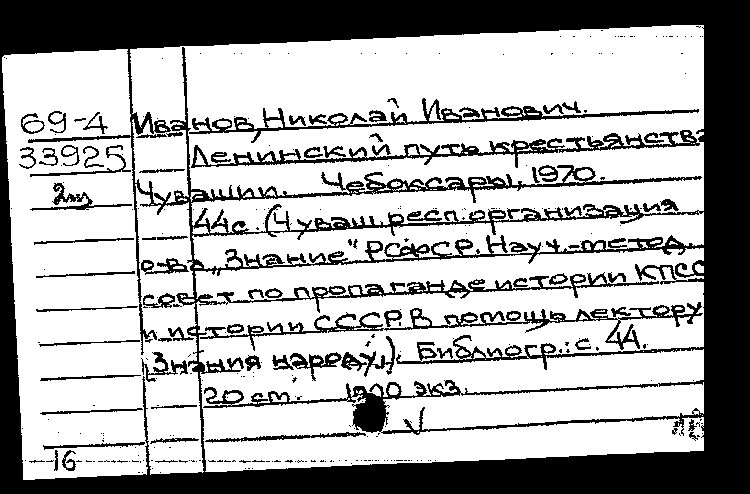 69-4 Иванов, Николай Иванович.
33925 Ленинский путь крестьянства
2 Чувашии. Чебоксары, 1970.
44с. (Чуваш. респ. организация
о-ва „Знание" РСФСР. Науч.-метод.
совет по пропаганде истории КПСС
и истории СССР. В помощь лектору
„Знания народу„). Библиогр.: с. 44.
20 cm. экз.
16